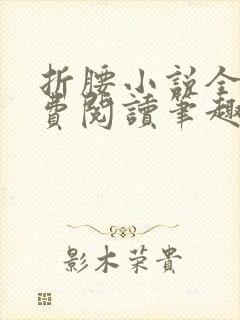 折腰小说全
費閱讀筆趣
影木荣貴